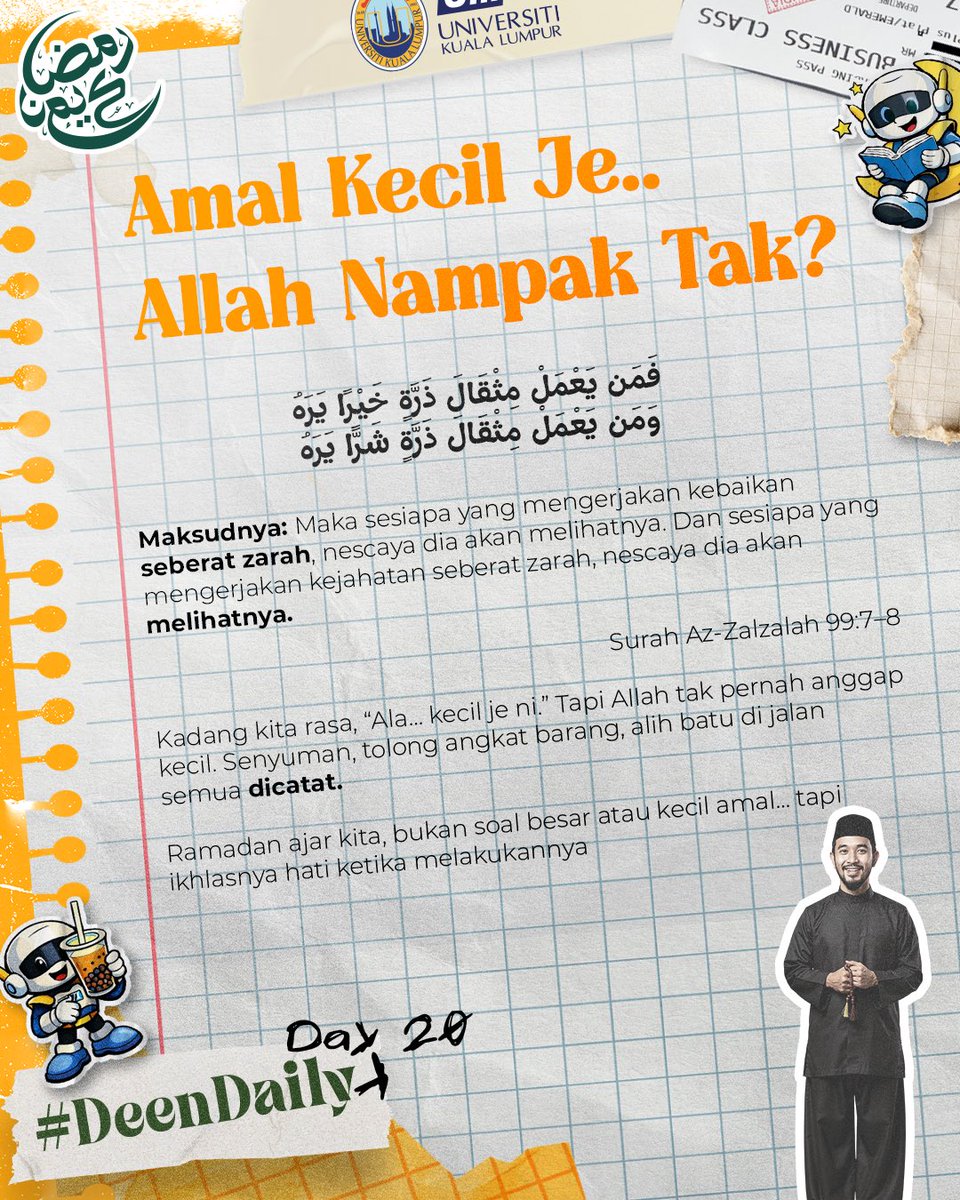 رمضان كريم
UNIVERSITI KUALA LUMPUR
UNIVERSITI
KUALA LUMPUR
BUSINESS CLASS
Amal Kecil Je..
Allah Nampak Tak?
فَمَن يَعْمَلْ مِثْقَالَ ذَرَّةٍ خَيْرًا يَرَهُ
وَمَن يَعْمَلْ مِثْقَالَ ذَرَّةٍ شَرًّا يَرَهُ
Maksudnya: Maka sesiapa yang mengerjakan kebaikan
seberat zarah, nescaya dia akan melihatnya. Dan sesiapa yang
mengerjakan kejahatan seberat zarah, nescaya dia akan
melihatnya.
Surah Az-Zalzalah 99:7–8
Kadang kita rasa, “Ala... kecil je ni.” Tapi Allah tak pernah anggap
kecil. Senyuman, tolong angkat barang, alih batu di jalan
semua dicatat.
Ramadan ajar kita, bukan soal besar atau kecil amal... tapi
ikhlasnya hati ketika melakukannya
Day 20
#DeenDaily